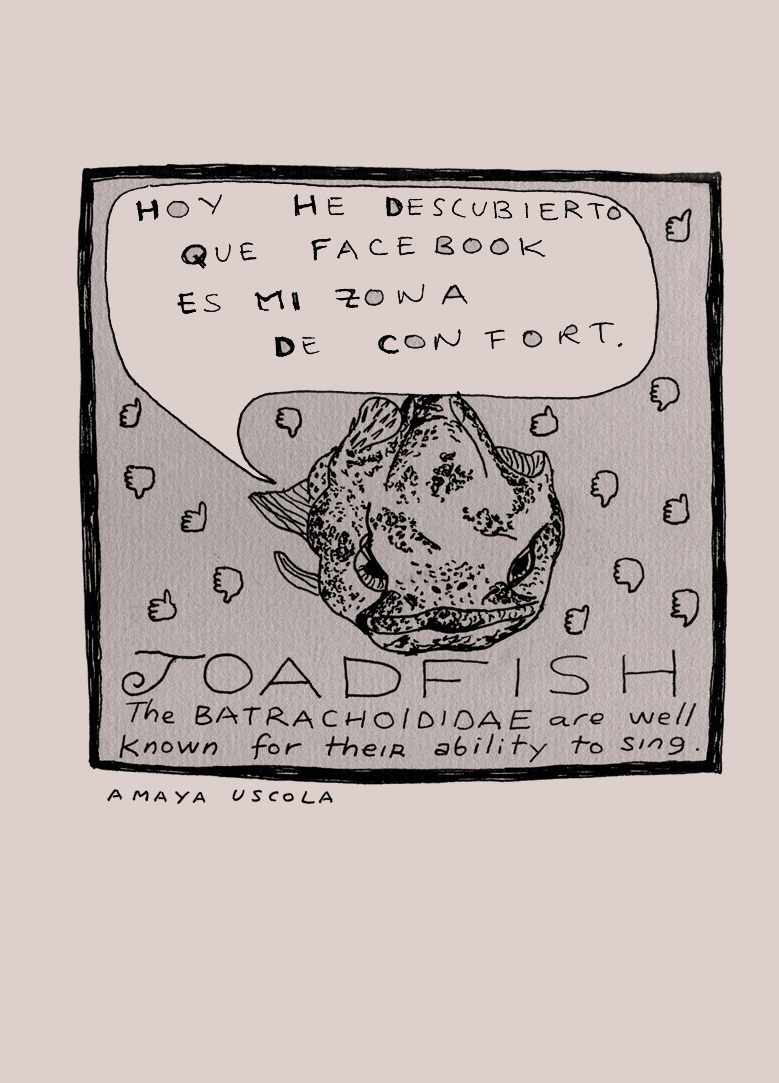 HOY HE DESCUBIERTO
QUE FACEBOOK
ES MI ZONA
DE CONFORT.
TOADFISH
The BATRACHOIDIDAE are well
known for their ability to sing.
AMAYA USCOLA